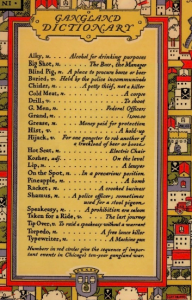 GANGLAND
DICTIONARY
Alky, n. Alcohol for drinking purposes
Big Shot, n. The Boss, the Manager
Blind Pig, n. A place to procure booze or beer
Buried, v. Held by the police incommunicado
Chisler, n. A petty thief, not a killer
Cold Meat, v. A corpse
Drill, v. To shoot
G. Men, n. Federal Officers
Grand, n. $1000.00
Grease, n. Money paid for protection
Hist, v. A hold-up
Hijack, v. For one gangster to rob another of
a truckload of beer or booze.
Hot Seat, n. Electric Chair
Kosher, adj. On the level
Lip, n. A lawyer
On the Spot, n. In a precarious position
Pineapple, n. A bomb
Racket, n. A crooked business
Shamus, n. A police officer; sometimes
used for a stool pigeon.
Speakeasy, n. A prohibition era saloon
Taken for a Ride, v. The last journey
Tip Over, v. To raid a speakeasy without a warrant
Torpedo, n. A free lance killer
Typewriter, n. A Machine gun
Numbers in red circles give the sequence of important
events in Chicago's ten-year gangland war.